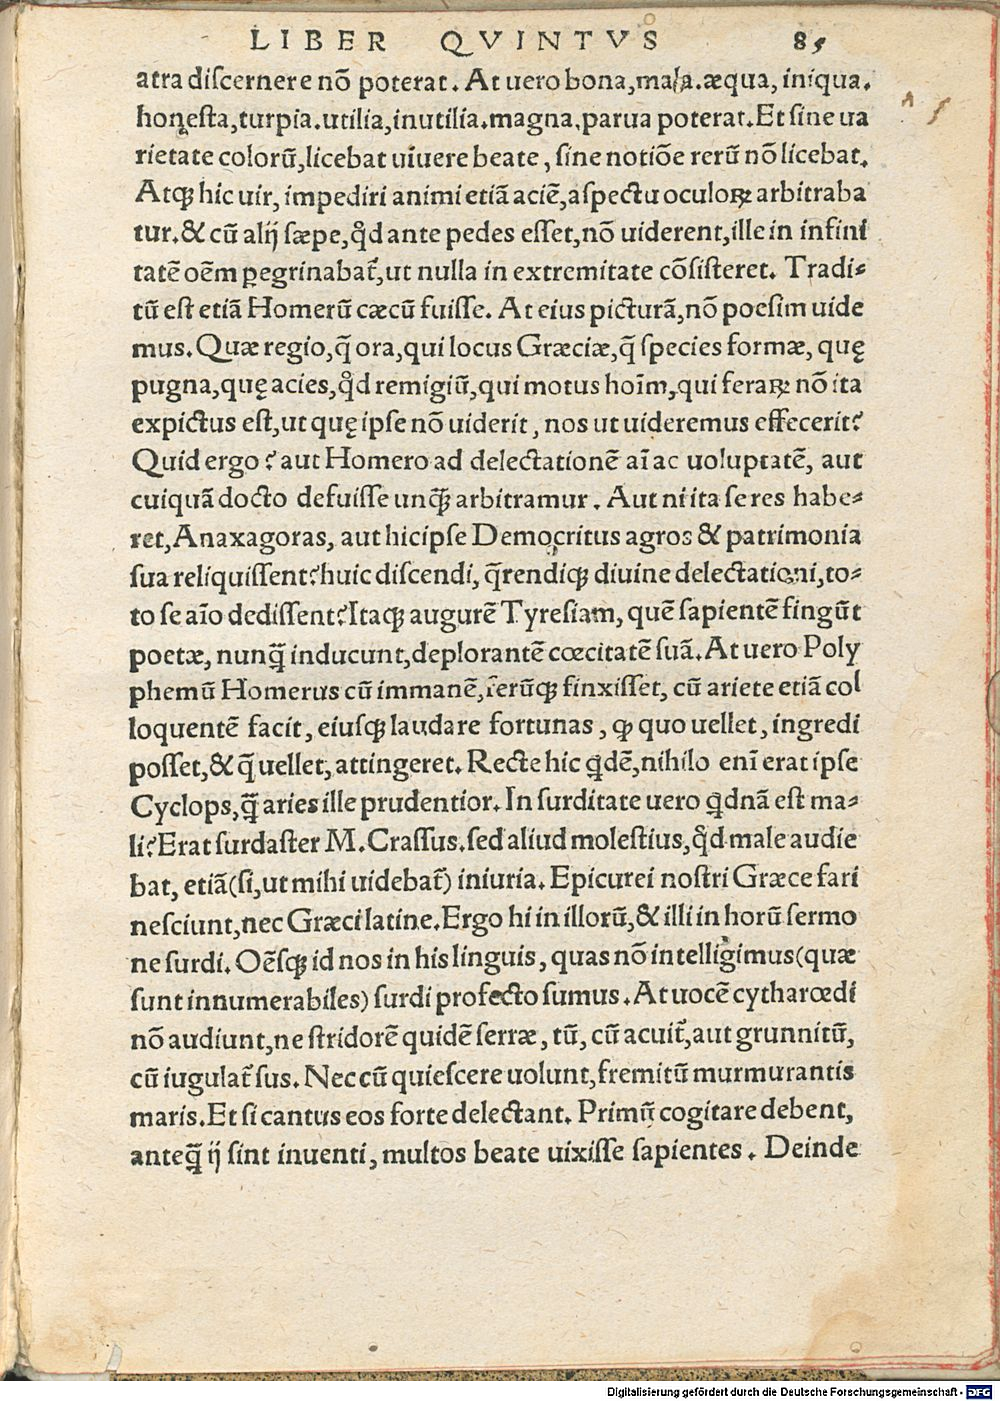 LIBER QVINTVS 85
atra diſcernere nō poterat. At uero bona, mala. æqua, iniqua.
honeſta, turpia. utilia, inutilia. magna, parua poterat. Et ſine ua
rietate colorū, licebat uiuere beate, ſine notiōe rerū nō licebat.
Atqꝫ hic uir, impediri animi etiā aciē, aſpectu oculoꝝ arbitraba
tur. & cū alij ſæpe, qd̛ ante pedes eſſet, nō uiderent, ille in infini
tatē oēm ꝑegrinabat̃, ut nulla in extremitate cōſiſteret. Tradi⸗
tū eſt etiā Homerū cæcū fuiſſe. At eius picturā, nō poeſim uide
mus. Quæ regio, q̄ ora, qui locus Græciæ, q̄ ſpecies formæ, quę
pugna, quę acies, qd̛ remigiū, qui motus hoīm, qui feraꝝ nō ita
expictus eſt, ut quę ipſe nō uiderit, nos ut uideremus effecerit?
Quid ergo? aut Homero ad delectationē aī ac uoluptatē, aut
cuiquā docto defuiſſe unq̄ arbitramur. Aut ni ita ſe res habe⸗
ret, Anaxagoras, aut hic ipſe Democritus agros & patrimonia
ſua reliquiſſent? huic diſcendi, q̄rendiqꝫ diuine delectationi, to⸗
to ſe aīo dediſſent? Itaqꝫ augurē Tyreſiam, quē ſapientē fingūt
poetæ, nunq̄ inducunt, deplorantē cœcitatē ſuā. At uero Poly
phemū Homerus cū immanē, ferūqꝫ finxiſſet, cū ariete etiā col
loquentē facit, eiuſqꝫ laudare fortunas, ꝙ quo uellet, ingredi
poſſet, & q̄ uellet, attingeret. Recte hic qdē, nihilo enī erat ipſe
Cyclops, q̄ aries ille prudentior. In ſurditate uero qdnā eſt ma⸗
li? Erat ſurdaſter M. Craſſus. ſed aliud moleſtius, qd̛ male audie
bat, etiā (ſi, ut mihi uidebat̃) iniuria. Epicurei noſtri Græce fari
neſciunt, nec Græci latine. Ergo hi in illorū, & illi in horū ſermo
ne ſurdi. Oēſqꝫ id nos in his linguis, quas nō intelligimus (quæ
ſunt innumerabiles) ſurdi profecto ſumus. At uocē cytharœdi
nō audiunt, ne ſtridorē quidē ſerræ, tū, cū acuit̃, aut grunnitū,
cū iugulat̃ ſus. Nec cū quieſcere uolunt, fremitū murmurantis
maris. Et ſi cantus eos forte delectant. Primū cogitare debent,
anteq̄ ij ſint inuenti, multos beate uixiſſe ſapientes. Deinde
Digitalisierung gefördert durch die Deutsche Forschungsgemeinschaft - DFG